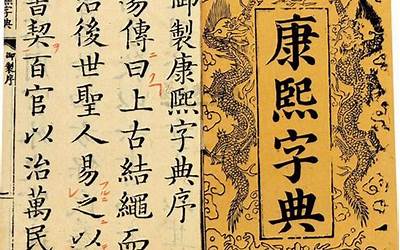 康熙字典
御製康熙字典序
易傳曰上古結繩而
治後世聖人易之以
書契百官以治萬民
御製序